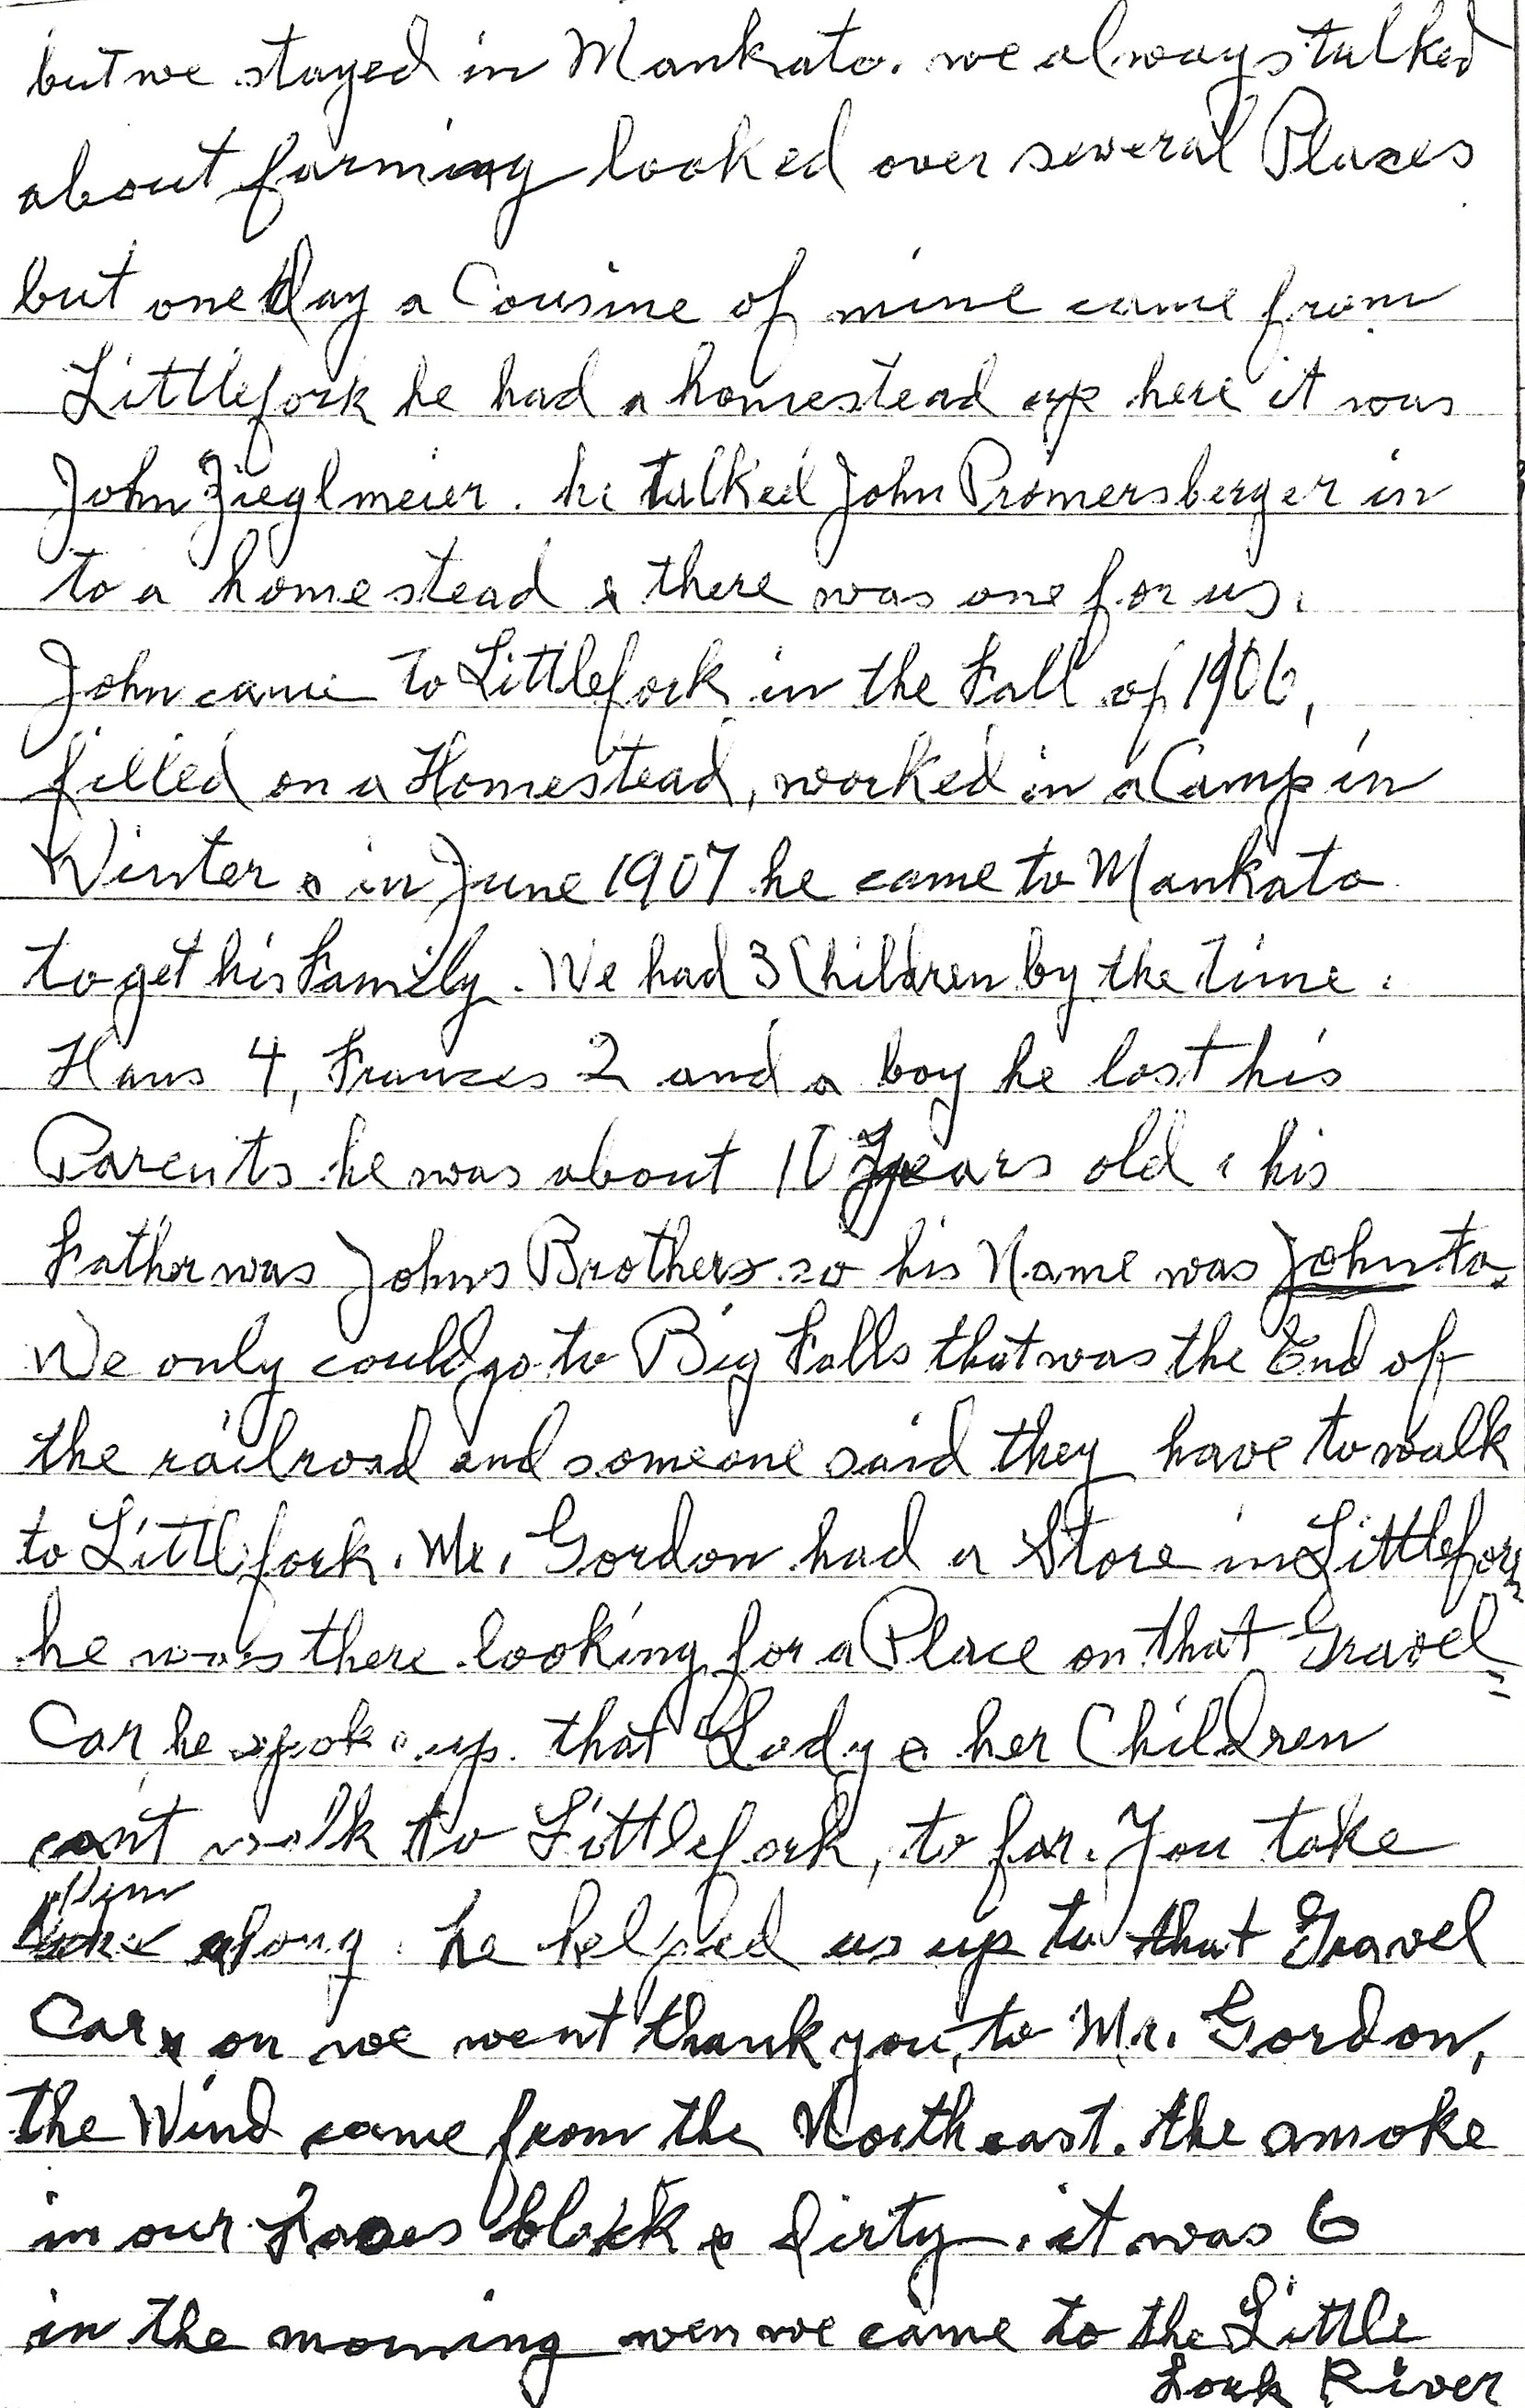 but we stayed in Mankato. we always talked
about farming looked over several Places
but one day a Cousine of mine came from
Littlefork he had a homestead up here it was
John Zieglmeier. he talked John Promersberger in
to a homestead & there was one for us.
John came to Littlefork in the Fall of 1906,
filled on a Homestead, worked in a Camp in
Winter & in June 1907 he came to Mankato
to get his Family. We had 3 Children by the time.
Hans 4, Frances 2 and a boy he lost his
Parents he was about 10 years old & his
Father was Johns Brothers so his Name was John to.
We only could go to Big Falls that was the End of
the railroad and someone said they have to walk
to Littlefork. Mr. Gordon had a Store in Littlefork
he was there looking for a Place on that Gravel
Car he spoke up that Lady & her Children
cant walk to Littlefork, to far. You take
them along. he helped us up to that Gravel
Car & on we went thank you, to Mr. Gordon,
the Wind came from the Northeast. the smoke
in our Faces black & dirty. it was 6
in the morning wen we came to the Little
Fork River